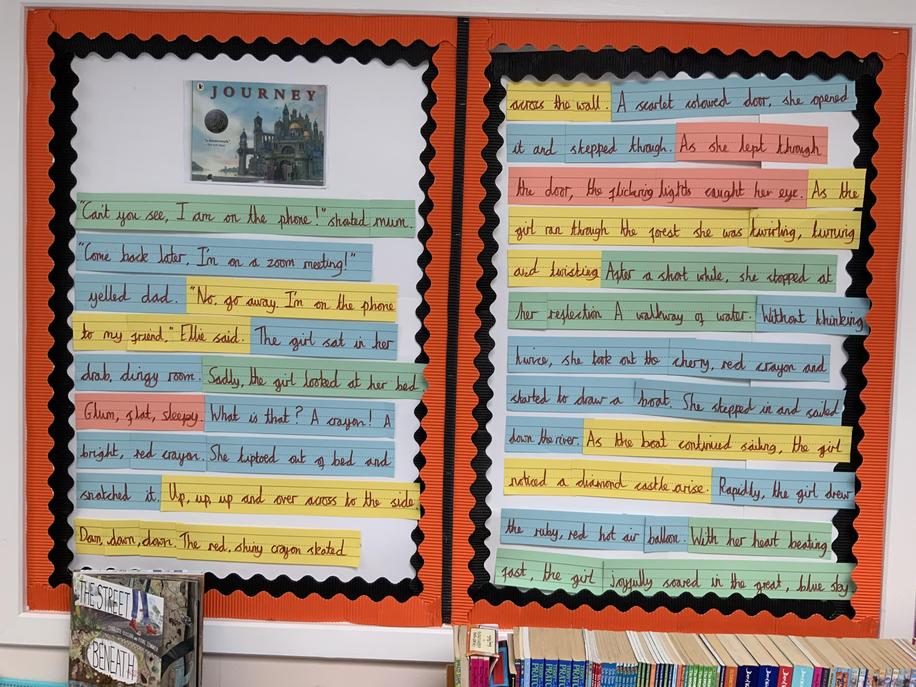 JOURNEY
"Can't you see, I am on the phone!" shouted mum.
"Come back later, I'm on a zoom meeting!"
yelled dad. "No, go away. I'm on the phone
to my friend." Ellie said. The girl sat in her
drab, dingy room. Sadly, the girl looked at her bed
Glum, flat, sleepy. What is that? A crayon! A
bright, red crayon. She tiptoed out of bed and
snatched it. Up, up, up and over across to the side.
Down, down, down. The red, shiny crayon skated
across the wall. A scarlet coloured door, she opened
it and stepped through. As she lept through
the door, the flickering lights caught her eye. As the
girl ran through the forest she was twirling, turning
and twisting After a short while, she stopped at
her reflection A walkway of water. Without thinking
twice, she took out the cherry, red crayon and
started to draw a boat. She stepped in and sailed
down the river. As the boat continued sailing, the girl
noticed a diamond castle arise. Rapidly, the girl drew
the ruby, red hot air balloon. With her heart beating
fast, the girl joyfully soared in the great, blue sky
THE STREET
BENEATH